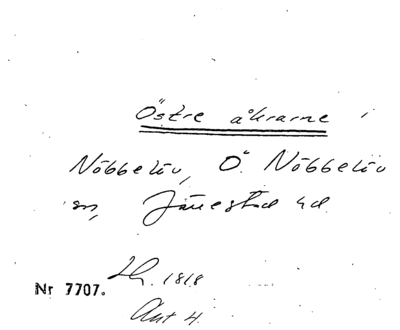 Östre åkrarne
Nöbbelöv, Ö. Nöbbelöv
sn, Järrestad hd
Lh. 1818
Nr 7707.
Akt 4.